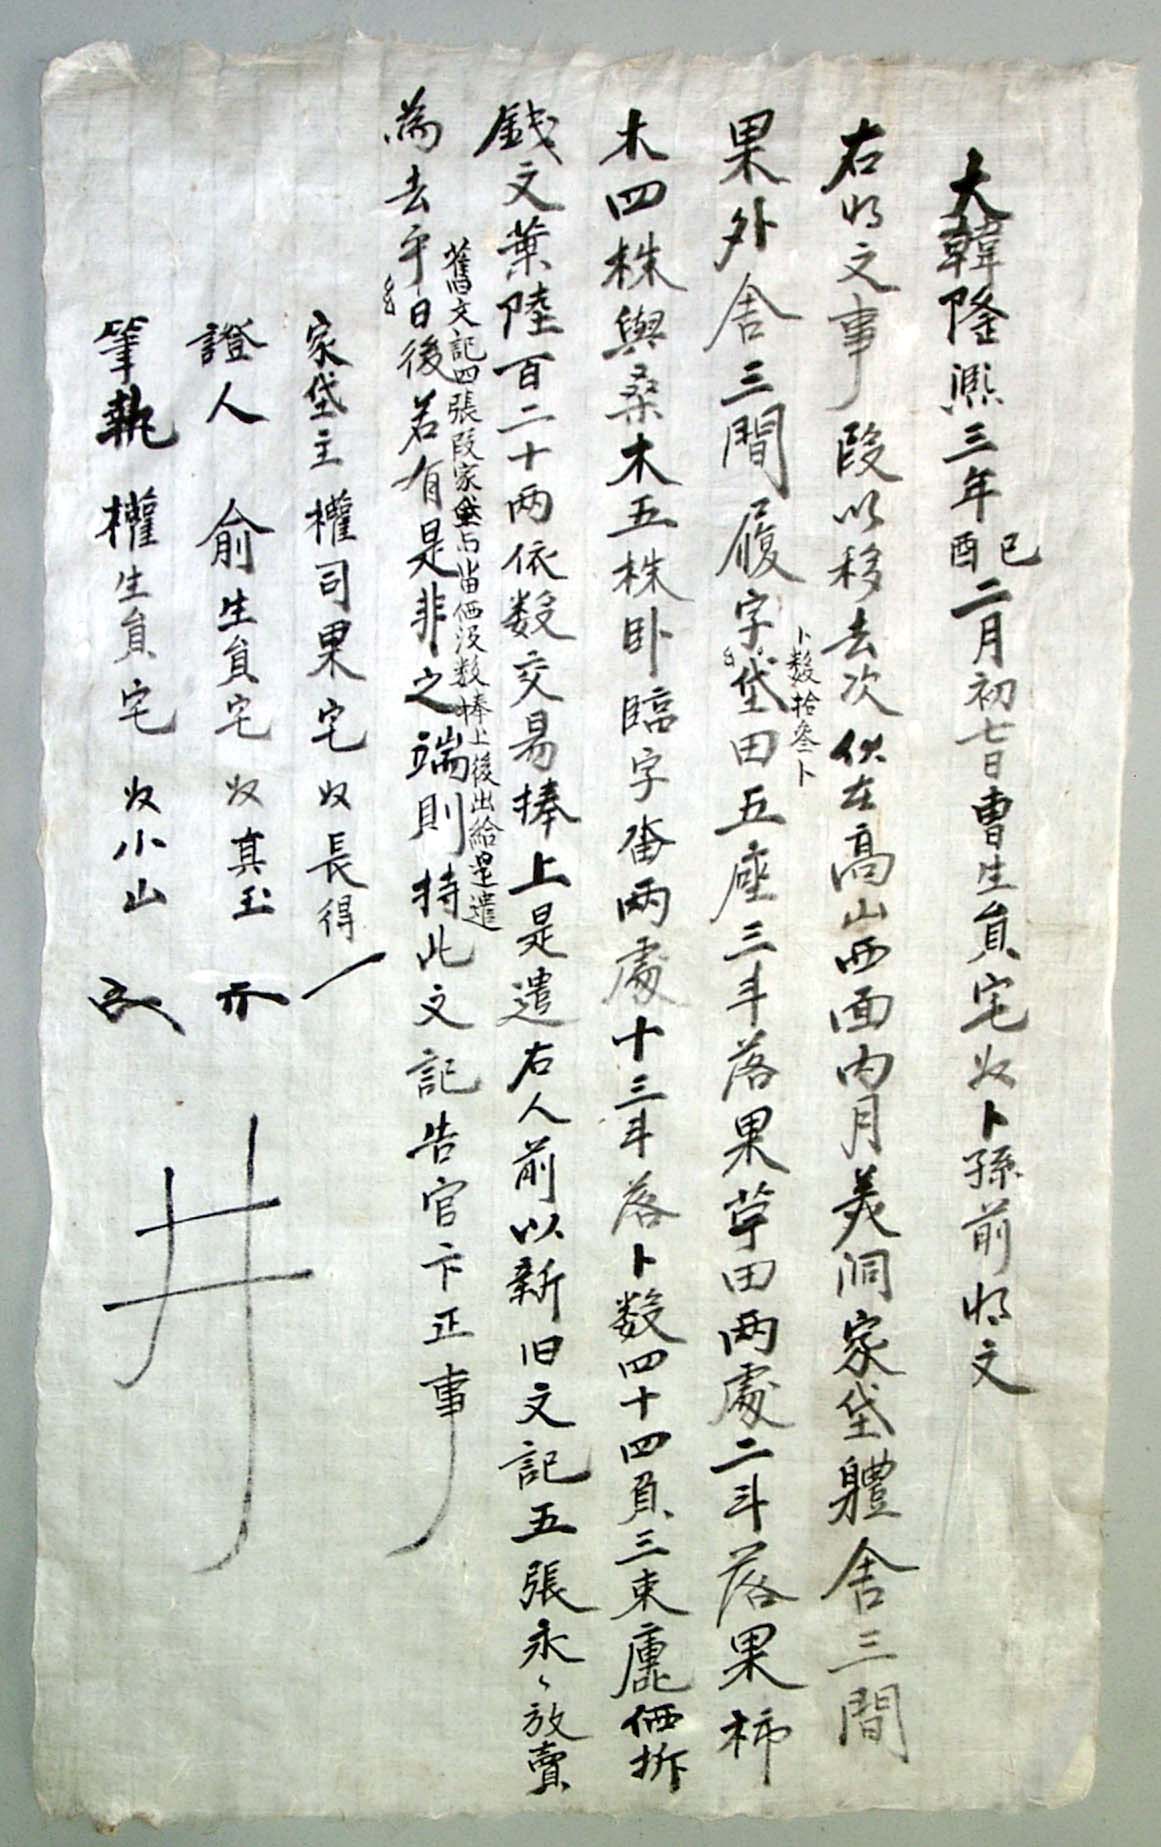 大韓隆熙三年己酉二月初七日曺生員宅奴卜孫前明文
右明文事段以移去次伏在高山西面內月美洞家垈軆舍三間
果外舍三間履字垈田五座三斗落果草田兩處二斗落果柿
卜數拾叄卜
木四株與桑木五株卧臨字畓兩處十三斗落卜数四十四負三束廤価折
錢文葉陸百二十兩依数交易捧上是遣右人前以新旧文記五張永〻放賣
舊文記四張段家垈与畓価没数捧上後出給是遣
為去乎日後若有是非之端則持此文記告官卞正事
家垈主 權司果宅 奴長得
證人 俞生員宅 奴真玉
筆執 權生員宅 奴小山